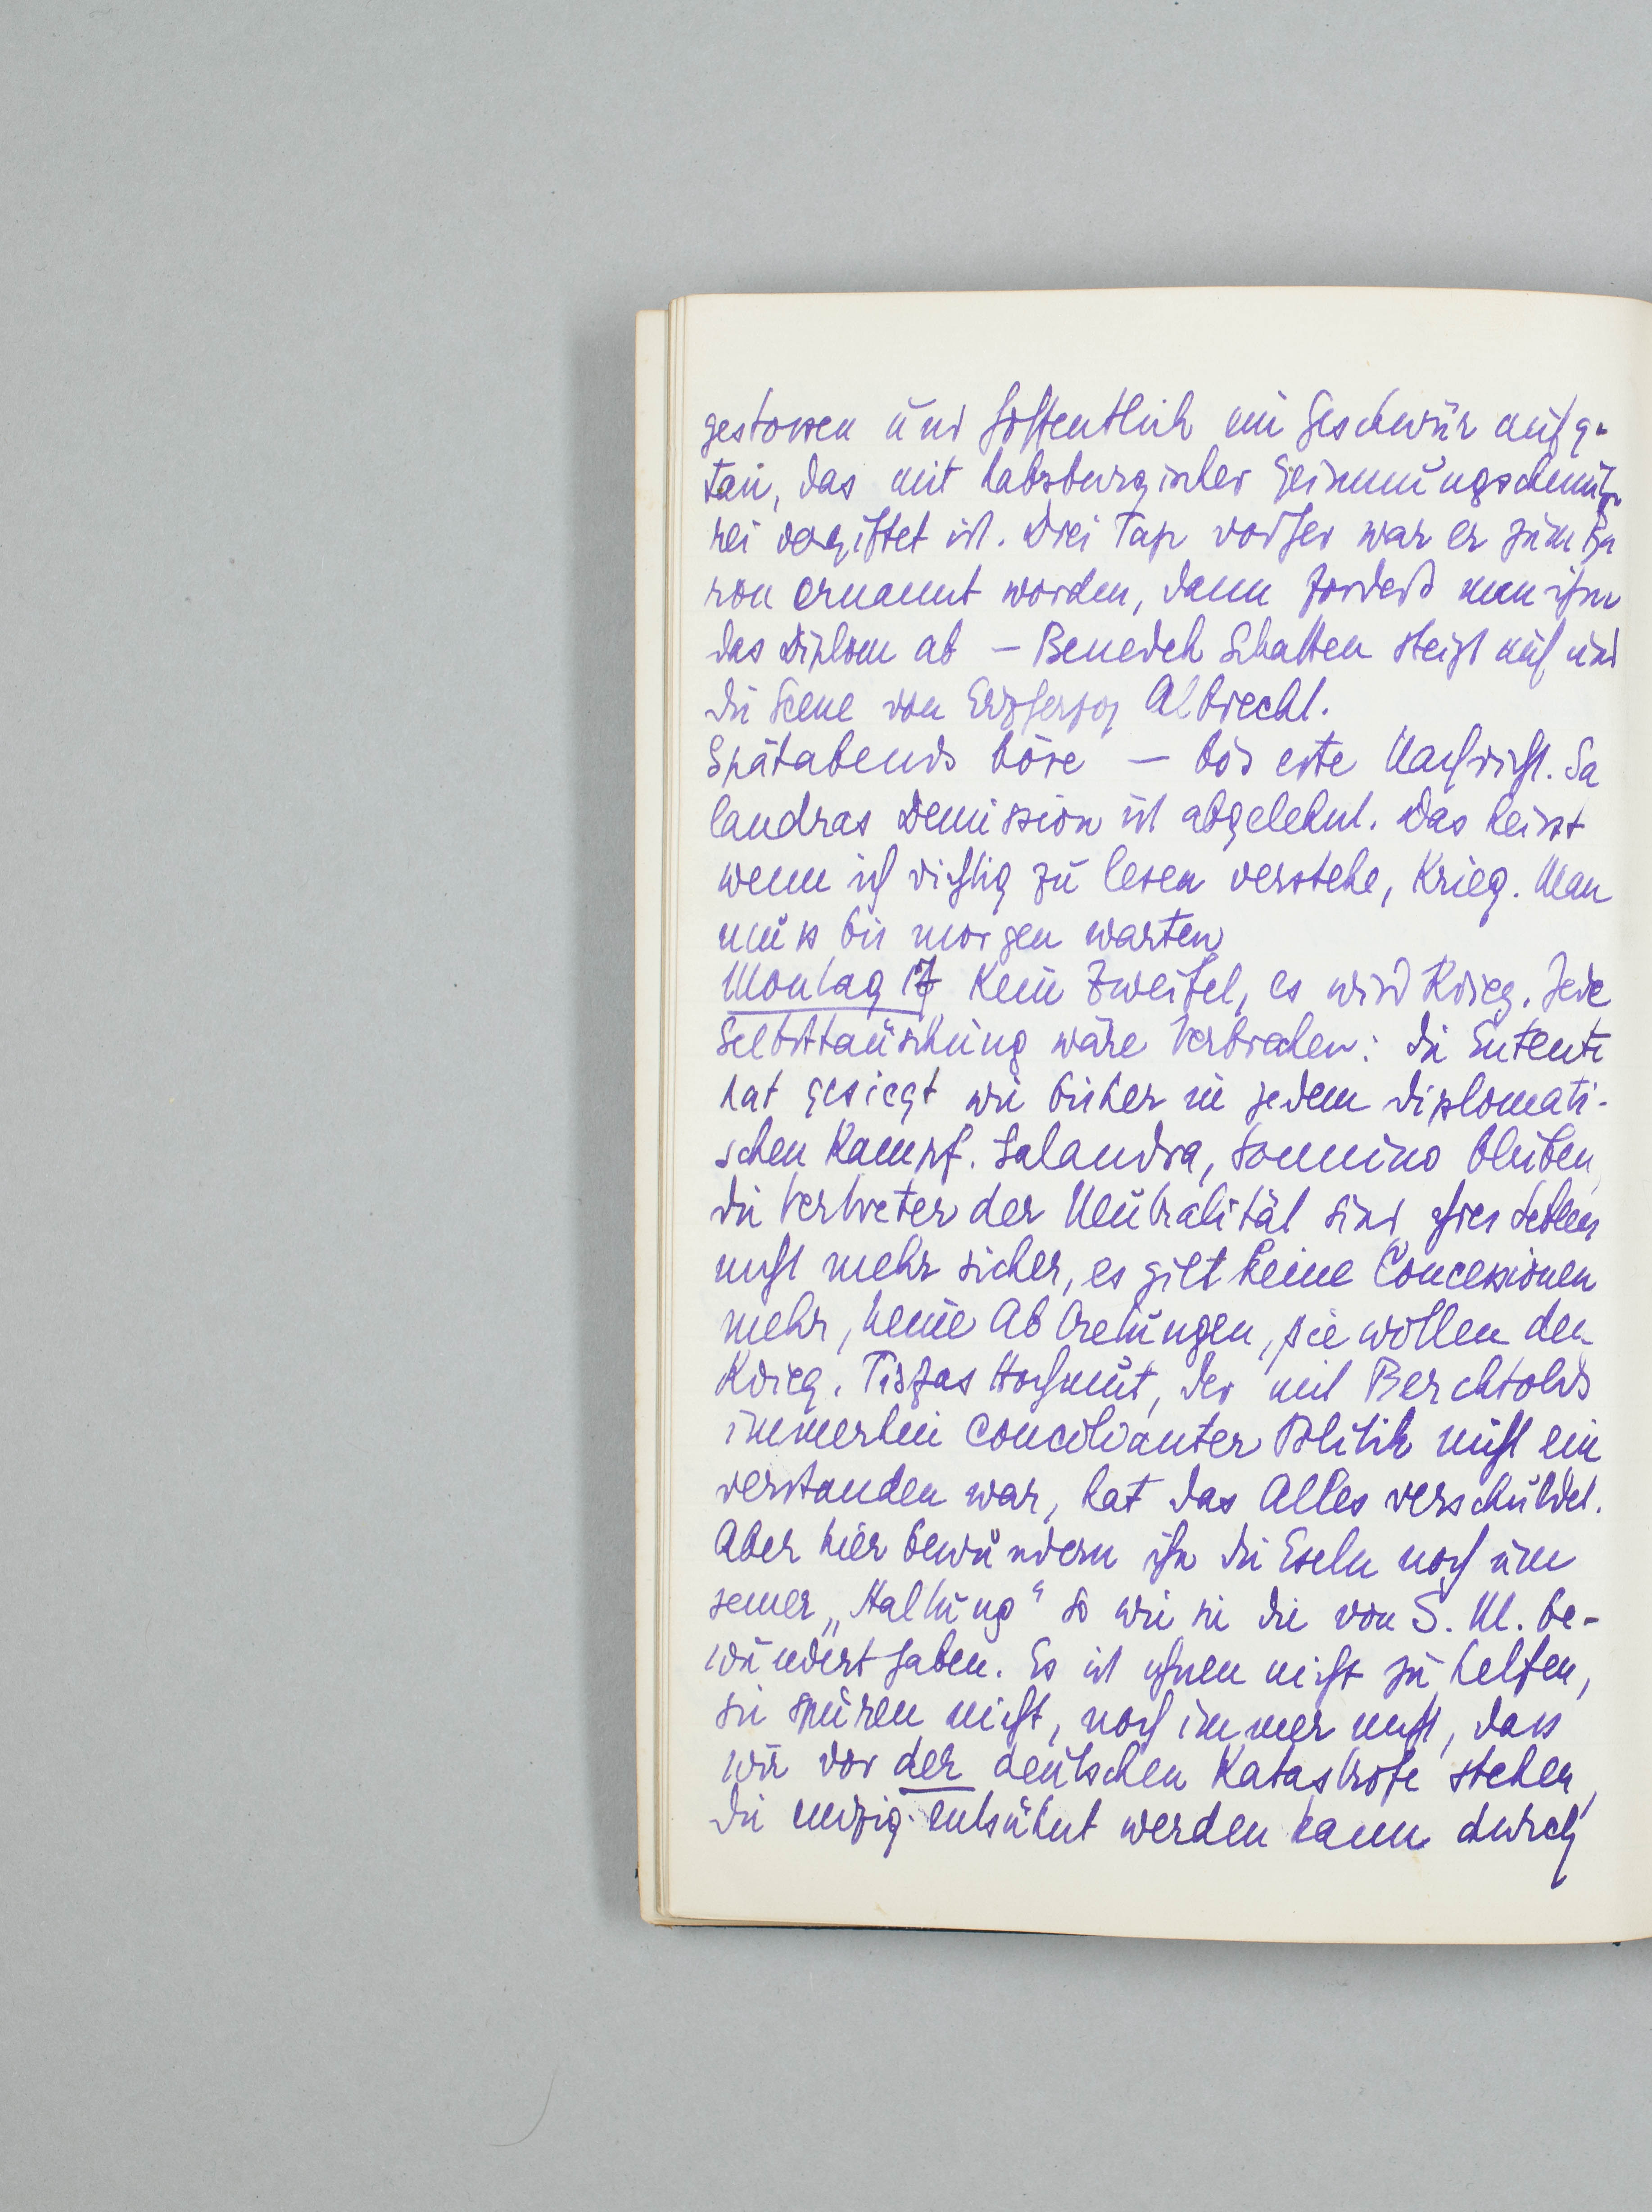 gestossen und hoffentlich ein Geschwür aufge-
tan, das mit habsburgischer Gesinnungschmutze-
rei vergiftet ist. Drei Tage vorher war er zum Ba
ron ernannt worden, dann fordert man ihm
das Diplom ab – Benedek Schatten steigt auf und
die Scene von Erzherzog Albrecht.
Spätabends böse – böseste Nachricht. Sa
landras Demission ist abgelehnt. Das heisst
wenn ich richtig zu lesen verstehe, Krieg. Man
muss bis morgen warten
Montag 17 Kein Zweifel, es wird Krieg. Jede
Selbsttäuschung wäre Verbrechen: die Entente
hat gesiegt wie bisher in jedem diplomati-
schen Kampf. Salandra, Sonnino bleiben,
die Vertreter der Neutralität sind ihres Lebens
nicht mehr sicher, es gilt keine Concessionen
mehr, keine Abtretungen, sie wollen den
Krieg. Tiszas Hochmut, der mit Berchtolds
immerhin concilianter Politik nicht ein
verstanden war, hat das Alles verschuldet.
Aber hier bewundern ihn die Eseln noch um
seiner „Haltung“ so wie sie die von S. M. be-
wundert haben. Es ist ihnen nicht zu helfen,
sie spüren nicht, noch immer nicht, dass
wir vor der deutschen Katastrofe stehen,
die einzig entsühnt werden kann durch